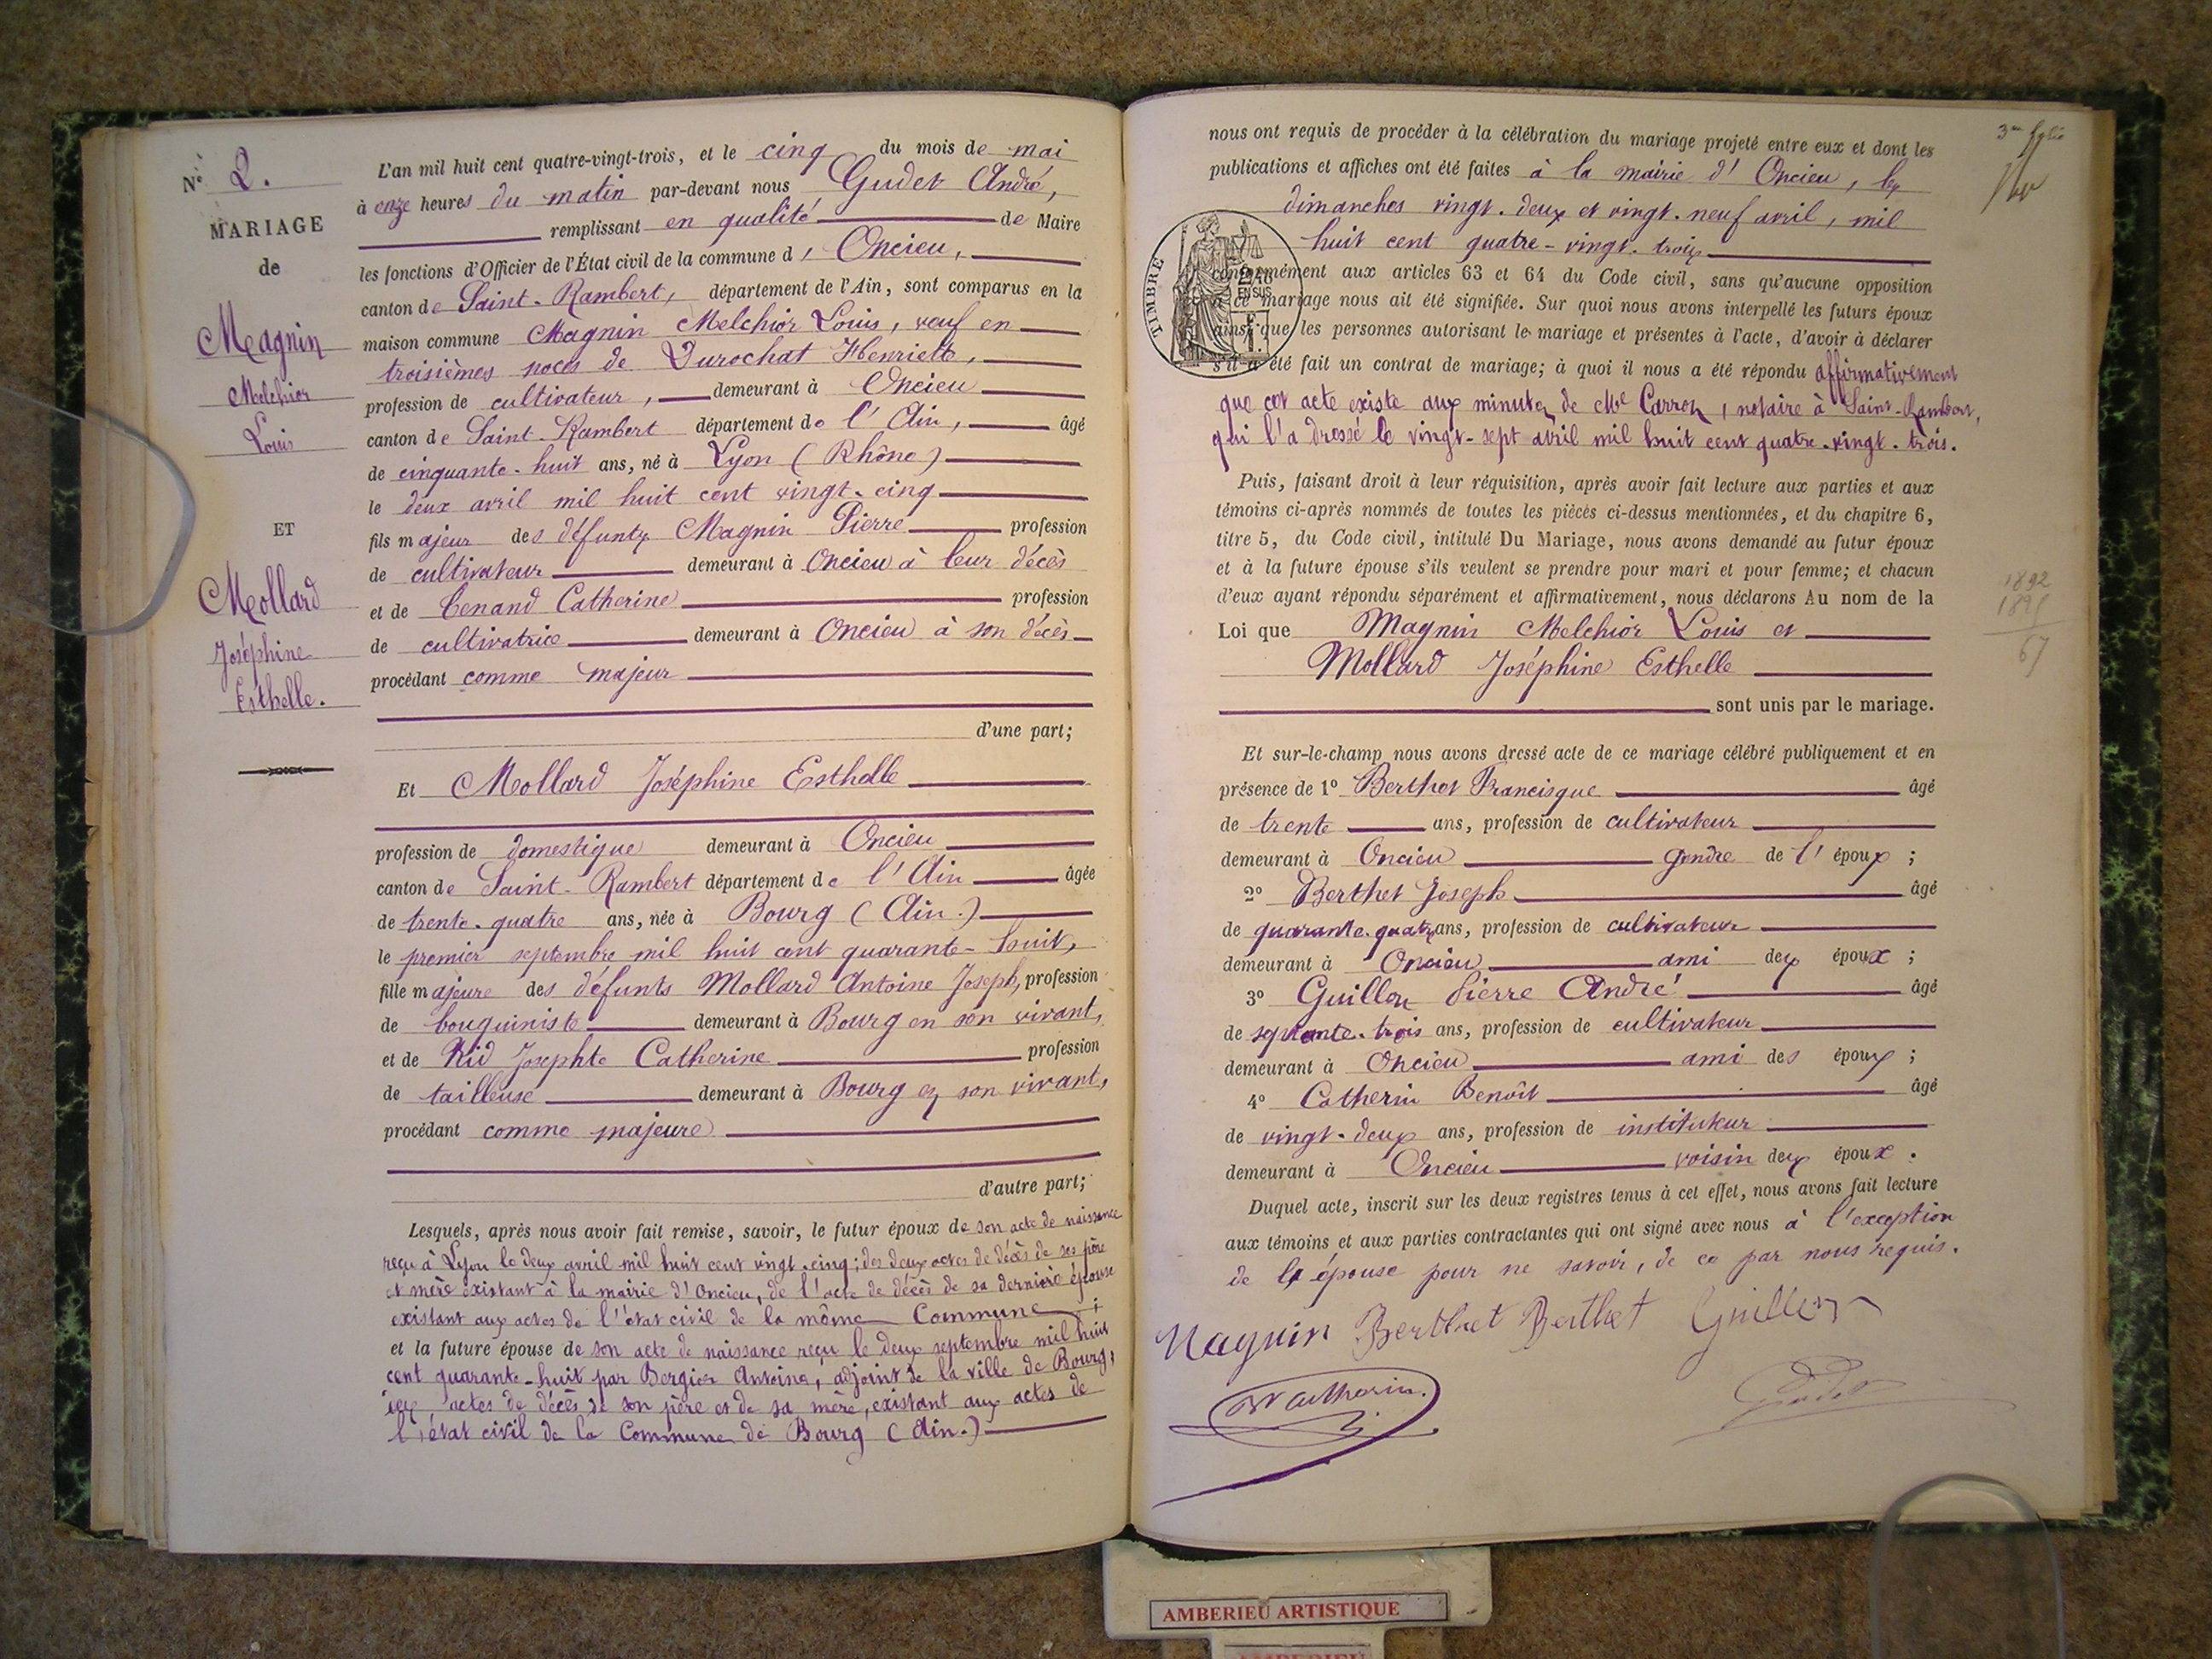 N° 2.
MARIAGE
de
Magnin
Melchior
Louis
ET
Mollard
Joséphine
Esthelle.
L'an mil huit cent quatre-vingt-trois, et le cinq du mois de mai
à onze heures du matin par-devant nous Gudet André,
remplissant en qualité de Maire
les fonctions d'Officier de l'État civil de la commune d' Oncieu,
canton de Saint-Rambert, département de l'Ain, sont comparus en la
maison commune Magnin Melchior Louis, veuf en
troisièmes noces de Durochat Henriette,
profession de cultivateur, demeurant à Oncieu
canton de Saint-Rambert département de l'Ain, âgé
de cinquante-huit ans, né à Lyon (Rhône)
le deux avril mil huit cent vingt-cinq
fils majeur des défunts Magnin Pierre profession
de cultivateur demeurant à Oncieu à leur décès
et de Cenand Catherine profession
de cultivatrice demeurant à Oncieu à son décès
procédant comme majeur
d'une part;
Et Mollard Joséphine Esthelle
profession de domestique demeurant à Oncieu
canton de Saint-Rambert département de l'Ain âgée
de trente-quatre ans, née à Bourg (Ain.)
le premier septembre mil huit cent quarante-huit,
fille majeure des défunts Mollard Antoine Joseph, profession
de bouquiniste demeurant à Bourg en son vivant,
et de Rid Josephte Catherine profession
de tailleuse demeurant à Bourg en son vivant,
procédant comme majeure
d'autre part;
Lesquels, après nous avoir fait remise, savoir, le futur époux de son acte de naissance
reçu à Lyon le deux avril mil huit cent vingt-cinq; des deux actes de décès de ses père
et mère existant à la mairie d'Oncieu, de l'acte de décès de sa dernière épouse
existant aux actes de l'état civil de la même Commune;
et la future épouse de son acte de naissance reçu le deux septembre mil huit
cent quarante-huit par Bergier Antoine, adjoint de la ville de Bourg,
actes de décès de son père et de sa mère, existant aux actes de
l'état civil de la Commune de Bourg (Ain.)
nous ont requis de procéder à la célébration du mariage projeté entre eux et dont les
publications et affiches ont été faites à la mairie d'Oncieu, les
dimanches vingt-deux et vingt-neuf avril, mil
huit cent quatre-vingt-trois
conformément aux articles 63 et 64 du Code civil, sans qu'aucune opposition
à ce mariage nous ait été signifiée. Sur quoi nous avons interpellé les futurs époux
ainsi que les personnes autorisant le mariage et présentes à l'acte, d'avoir à déclarer
s'il a été fait un contrat de mariage; à quoi il nous a été répondu affirmativement
que cet acte existe aux minutes de Me Carron, notaire à Saint-Rambert,
qui l'a dressé le vingt-sept avril mil huit cent quatre-vingt-trois.
TIMBRE
EN SUS
Puis, faisant droit à leur réquisition, après avoir fait lecture aux parties et aux
témoins ci-après nommés de toutes les pièces ci-dessus mentionnées, et du chapitre 6,
titre 5, du Code civil, intitulé Du Mariage, nous avons demandé au futur époux
et à la future épouse s'ils veulent se prendre pour mari et pour femme; et chacun
d'eux ayant répondu séparément et affirmativement, nous déclarons Au nom de la
Loi que Magnin Melchior Louis et
Mollard Joséphine Esthelle
sont unis par le mariage.
Et sur-le-champ nous avons dressé acte de ce mariage célébré publiquement et en
présence de 1° Berthet Francisque âgé
de trente ans, profession de cultivateur
demeurant à Oncieu gendre de l'époux;
2° Berthet Joseph âgé
de quarante-quatre ans, profession de cultivateur
demeurant à Oncieu ami des époux;
3° Guillon Pierre André âgé
de septante-trois ans, profession de cultivateur
demeurant à Oncieu ami des époux;
4° Catherin Benoît âgé
de vingt-deux ans, profession de instituteur
demeurant à Oncieu voisin des époux.
Duquel acte, inscrit sur les deux registres tenus à cet effet, nous avons fait lecture
aux témoins et aux parties contractantes qui ont signé avec nous à l'exception
de la épouse pour ne savoir, de ce par nous requis.
Magnin Berthet Berthet Guillon
Catherin
Gudet
1892
67
AMBERIEU ARTISTIQUE
AMBERIEU